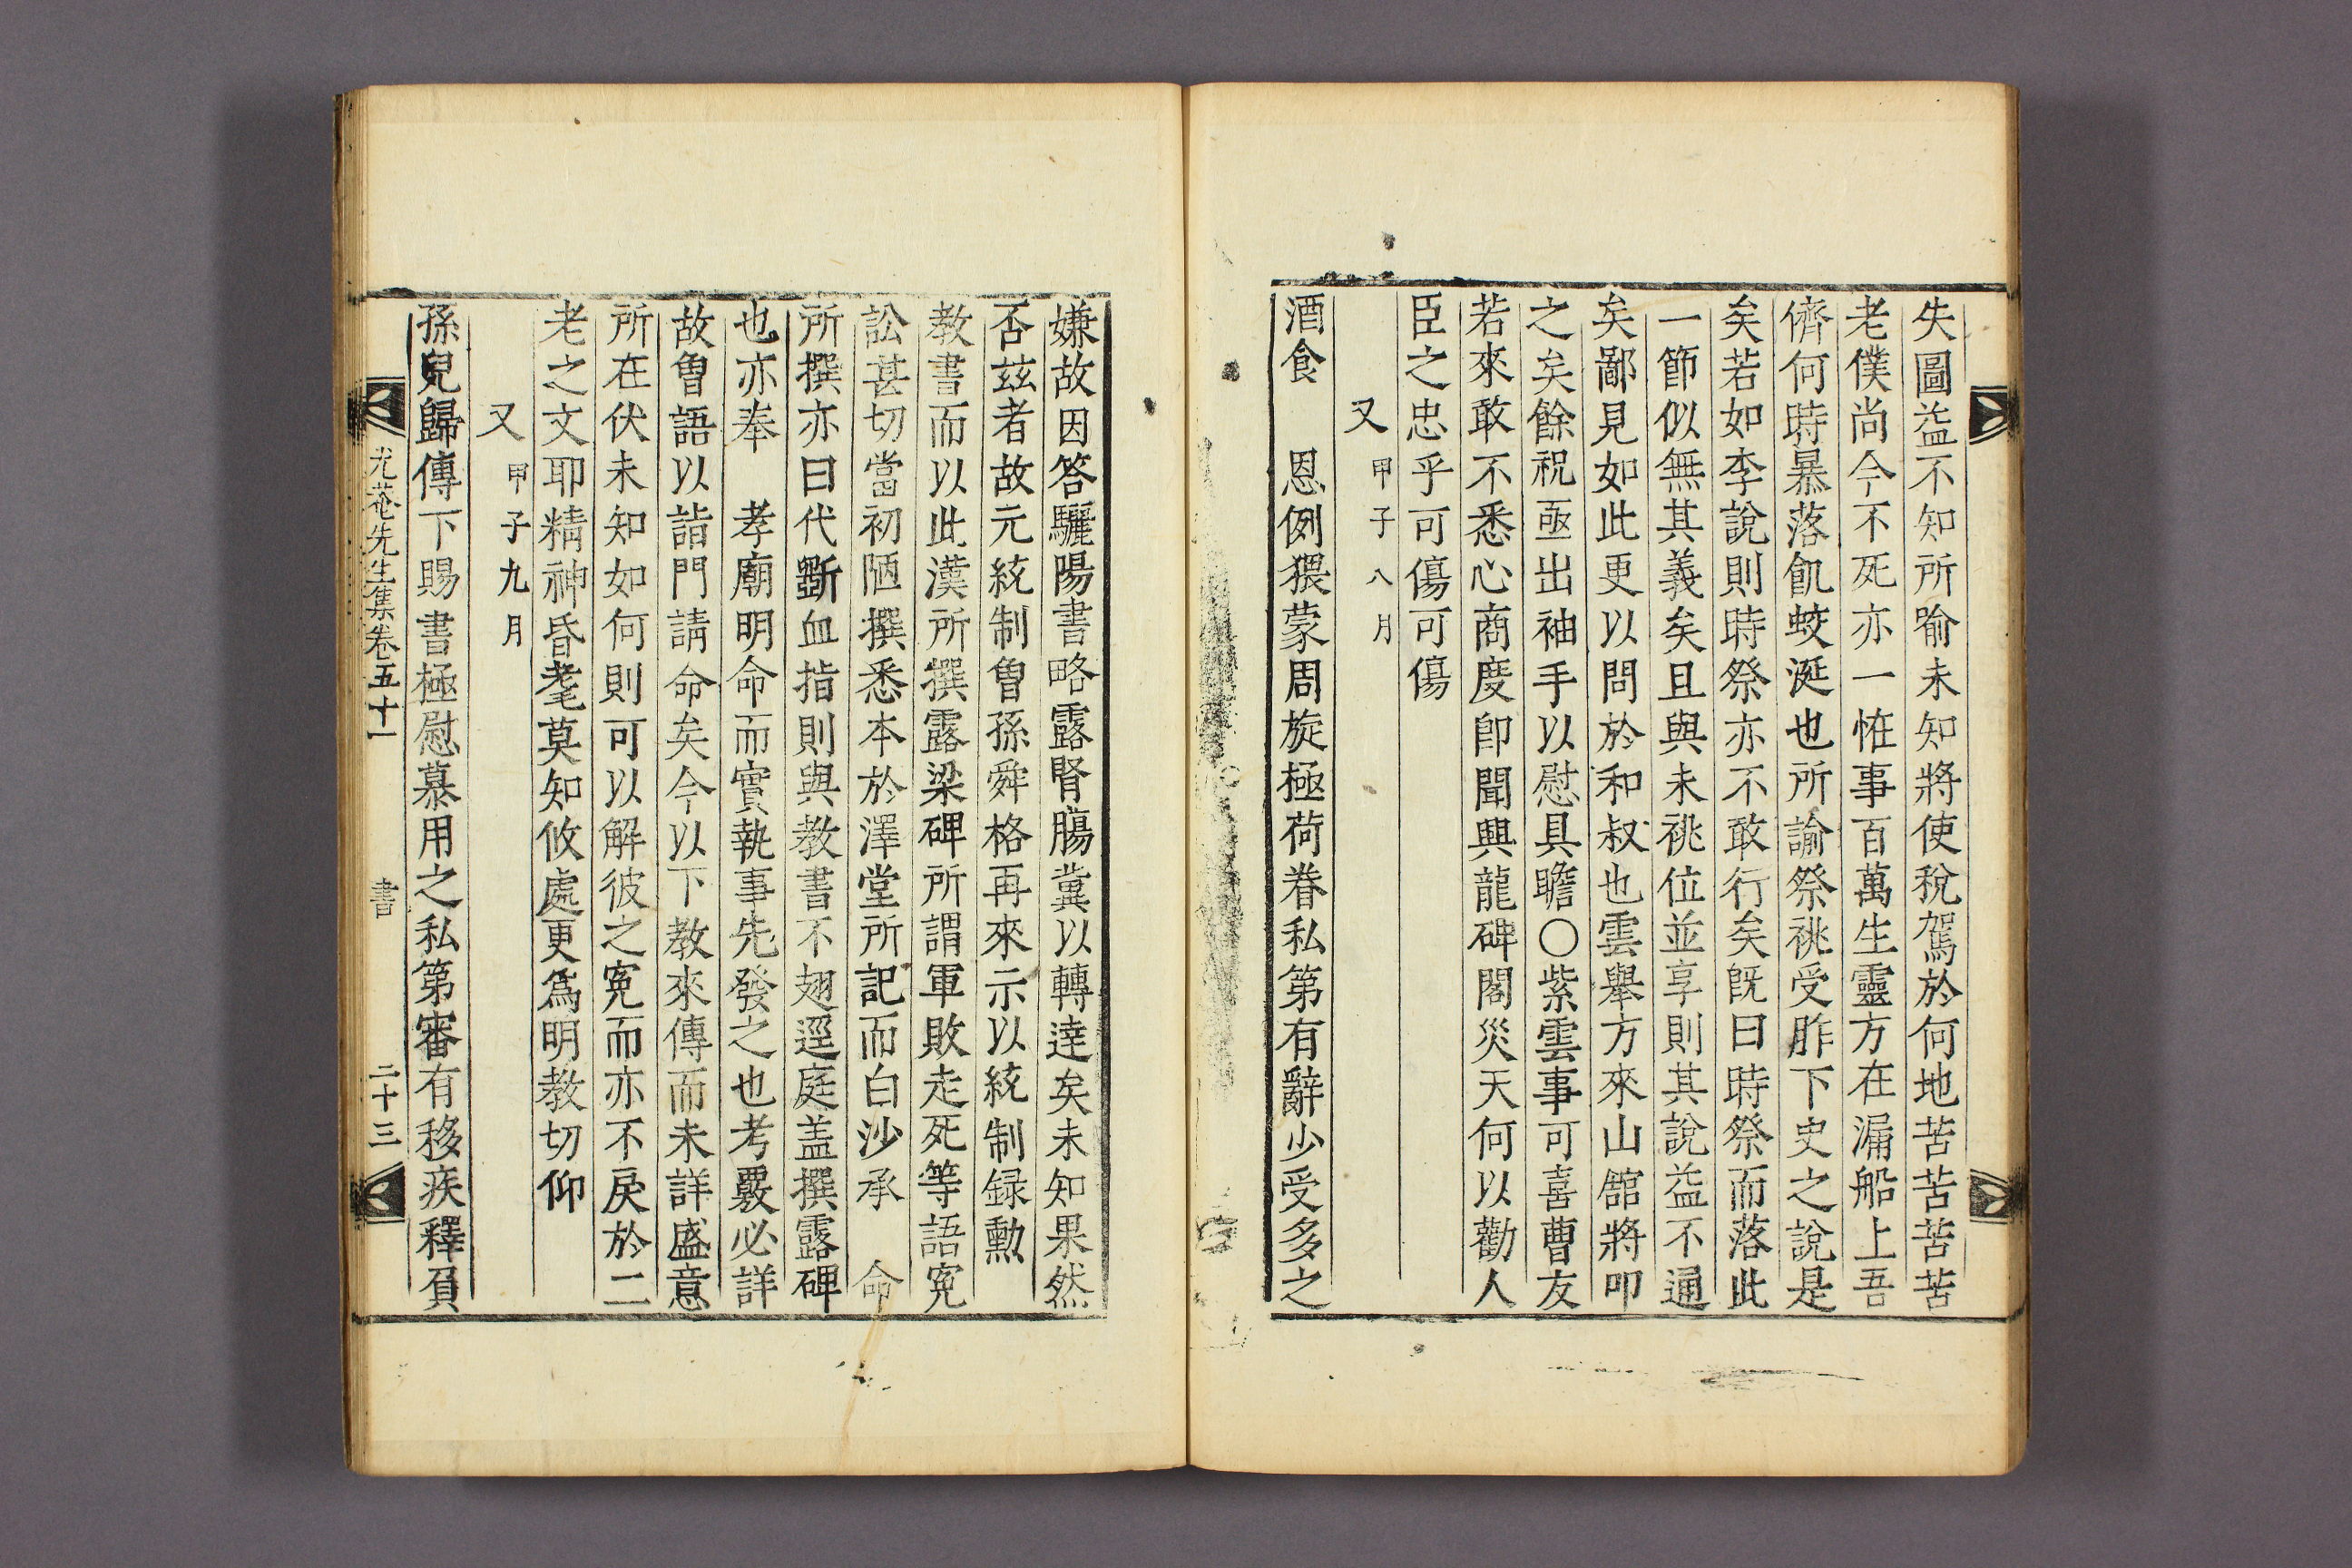 失圖益不知所喻未知將使稅駕於何地苦苦苦苦
老僕尚今不死亦一恠事百萬生靈方在漏船上吾
儕何時暴落飢蛟涎也所諭祭祧受胙下史之說是
矣若如李說則時祭亦不敢行矣旣曰時祭而落此
一節似無其義矣且與未祧位並享則其說益不通
矣鄙見如此更以問於和叔也雲擧方來山舘將叩
之矣餘祝亟出袖手以慰具瞻○紫雲事可喜曹友
若來敢不悉心商度卽聞興龍碑閣災天何以勸人
臣之忠乎可傷可傷
又 甲子八月
酒食 恩例猥蒙周旋極荷眷私第有辭少受多之
嫌故因答驪陽書略露腎膓糞以轉達矣未知果然
否玆者故元統制曾孫舜格再來示以統制録勳
教書而以此漢所撰露梁碑所謂軍敗走死等語寃
訟甚切當初陋撰悉本於澤堂所記而白沙承 命
所撰亦曰代斲血指則與教書不翅逕庭盖撰露碑
也亦奉 孝廟明命而實執事先發之也考覈必詳
故曾語以詣門請命矣今以下教來傳而未詳盛意
所在伏未知如何則可以解彼之寃而亦不戾於二
老之文耶精神昏耄莫知攸處更爲明教切仰
又 甲子九月
孫兒歸傳下賜書極慰慕用之私第審有移疾釋負
尤菴先生集卷五十一 書 二十三